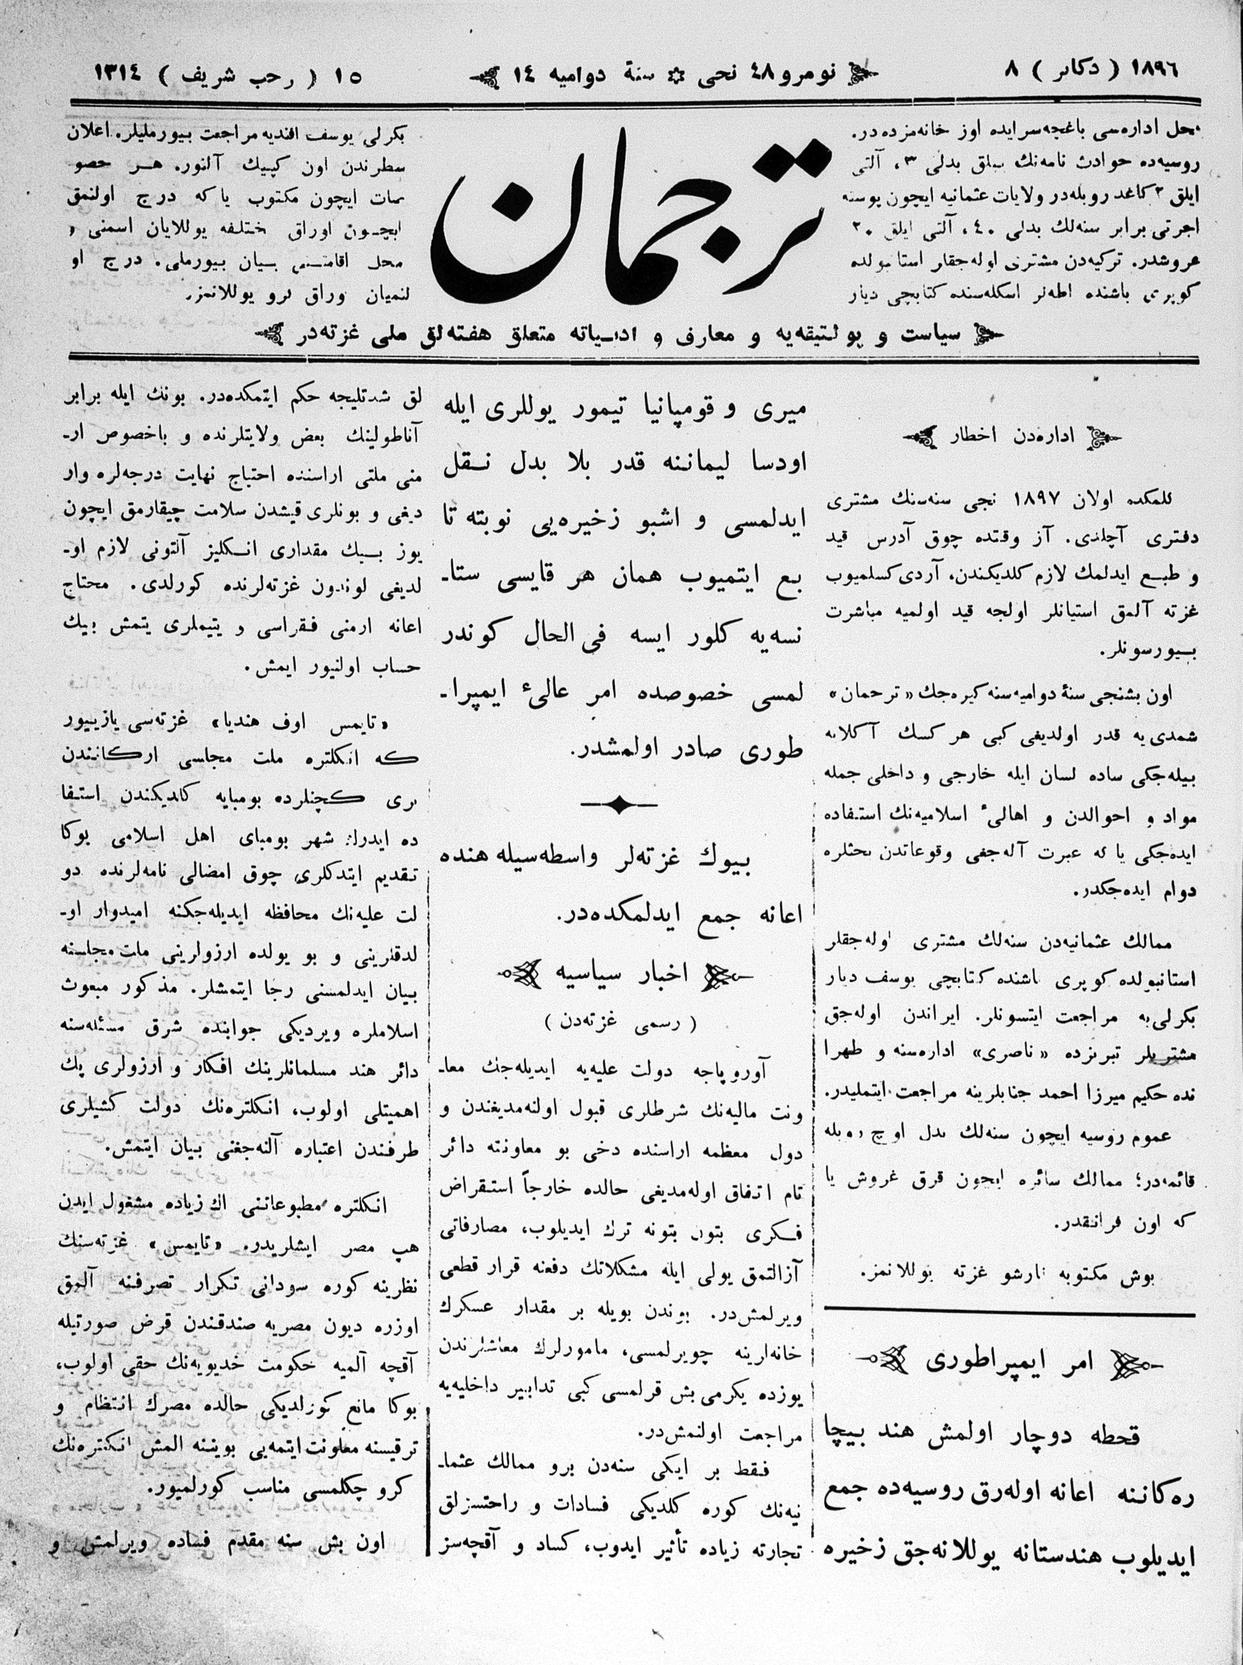 ١٨٩٦ ( دكابر ) ٨
نومرو ٤٨ نجی ✲ سنهٔ دواميه ١٤
١٥ ( رجب شريف ) ١٣١٤
محل اداره‌سی باغچه‌سرايده اوز خانه‌مزده‌در.
روسيه‌ده حوادث نامه‌نك سيللق بدلی ٣، آلتی
ايلق ٢ كاغد روبله‌در ولايات عثمانيه ايچون پوسته
اجرتی برابر سنه‌لك بدلی ٤٠، آلتی ايلق ٢٠
غروشدر. تركيه‌دن مشتری اوله‌جقلر استانبولده
كوپری باشنده اطه‌لر اسكله‌سنده كتابچی ديار
ترجمان
بكرلی يوسف افنديه مراجعت بيورمليلر. اعلان
سطرندن اون كپيك آلنور. هر خصو
صات ايچون مكتوب ياكه درج اولنمق
ايچون اوراق مختلفه يوللايان اسمنی و
محل اقامتنی بيان بيورملی. درج او
لنميان اوراق كرو يوللانمز.
سياست و پولتيقه‌يه و معارف و ادبياته متعلق هفته‌لق ملی غزته‌در
اداره‌دن اخطار
كلمكده اولان ١٨٩٧ نجی سنه‌سنك مشتری
دفتری آچلدی. آز وقتده چوق آدرس قيد
و طبع ايدلمك لازم كلديكندن، آردی كسلميوب
غزته آلمق استيانلر اولجه قيد اولميه مباشرت
بيورسونلر.
اون بشنجی سنهٔ دواميه‌سنه كيره‌جك «ترجمان»
شمدی‌يه قدر اولديغی كبی هر كسك آكلايه
بيله‌جكی ساده لسان ايله خارجی و داخلی جمله
مواد و احوالدن و اهالیٔ اسلاميه‌نك استفاده
ايده‌جكی يا كه عبرت آله‌جغی وقوعاتدن بحثلره
دوام ايده‌جكدر.
ممالك عثمانيه‌دن سنه‌لك مشتری اوله‌جقلر
استانبولده كوپری باشنده كتابچی يوسف ديار
بكرلی‌يه مراجعت ايتسونلر. ايراندن اوله‌جق
مشتريلر تبريزده «ناصری» اداره‌سنه و طهرا
نده حكيم ميرزا احمد جنابلرينه مراجعت ايتمليدر.
عموم روسيه ايچون سنه‌لك بدل اوچ روبله
قائمه‌در؛ ممالك سائره ايچون قرق غروش يا
كه اون فرانقدر.
بوش مكتوبه قارشو غزته يوللانمز.
امر ايمپراطوری
قحطه دوچار اولمش هند بيچا
ره‌كاننه اعانه اوله‌رق روسيه‌ده جمع
ايديلوب هندستانه يوللانه‌جق زخيره
ميری و قومپانيا تيمور يوللری ايله
اودسا ليماننه قدر بلا بدل نقل
ايدلمسی و اشبو زخيره‌يی نوبته تا
بع ايتميوب همان هر قايسی ستا-
نسه‌يه كلور ايسه فی الحال كوندر
لمسی خصوصده امر عالیٔ ايمپرا-
طوری صادر اولمشدر.
بيوك غزته‌لر واسطه‌سيله هنده
اعانه جمع ايدلمكده‌در.
اخبار سياسيه
( رسمی غزته‌دن )
آوروپاجه دولت عليه‌يه ايديله‌جك معا-
ونت ماليه‌نك شرطلری قبول اولنه‌مديغندن و
دول معظمه اراسنده دخی بو معاونته دائر
تام اتفاق اوله‌مديغی حالده خارجاً استقراض
فكری بتون بتونه ترك ايديلوب، مصارفاتی
آزالتمق يولی ايله مشكلاتك دفعنه قرار قطعی
ويرلمش‌در. بوندن بويله بر مقدار عسكرك
خانه‌لرينه چويرلمسی، مامورلرك معاشلرندن
يوزده يكرمی بش قرلمسی كبی تدابير داخليه‌يه
مراجعت اولنمش‌در.
فقط بر ايكی سنه‌دن برو ممالك عثما-
نيه‌نك كوره كلديكی فسادات و راحتسزلق
تجارته زياده تأثير ايدوب، كساد و آقچه‌سز
لق شدتليجه حكم ايتمكده‌در. بونك ايله برابر
آناطولينك بعض ولايتلرنده و باخصوص ار-
منی ملتی اراسنده احتياج نهايت درجه‌لره وار
ديغی و بونلری قيشدن سلامت چيقارمق ايچون
يوز بيك مقداری انكليز آلتونی لازم او-
لديغی لوندون غزته‌لرنده كورلدی. محتاج
اعانه ارمنی فقراسی و يتيملری يتمش بيك
حساب اولنيور ايمش.
«تايمس اوف هنديا» غزته‌سی يازييور
كه انكلتره ملت مجلسی اركانندن
بری كچنلرده بومبايه كلديكندن استفا
ده ايدرك شهر بومبای اهل اسلامی بوكا
تقديم ايتدكلری چوق امضالی نامه‌لرنده دو
لت عليه‌نك محافظه ايديله‌جكنه اميدوار او-
لدقلرينی و بو يولده ارزولرينی ملت مجلسنه
بيان ايدلمسنی رجا ايتمشلر. مذكور مبعوث
اسلاملره ويرديكی جوابنده شرق مسئله‌سنه
دائر هند مسلمانلرينك افكار و ارزولری پك
اهميتلی اولوب، انكلتره‌نك دولت كشيلری
طرفندن اعتباره آلنه‌جغنی بيان ايتمش.
انكلتره مطبوعاتنی اك زياده مشغول ايدن
هپ مصر ايشلريدر. «تايمس» غزته‌سنك
نظرينه كوره سودانی تكرار تصرفنه آلمق
اوزره ديون مصريه صندقندن قرض صورتيله
آقچه آلميه حكومت خديويه‌نك حقی اولوب،
بوكا مانع كورلديكی حالده مصرك انتظام و
ترقيسنه معاونت ايتمه‌يی بويننه المش انكلتره‌نك
كرو چكلمسی مناسب كورلميور.
اون بش سنه مقدم فساده ويرلمش و